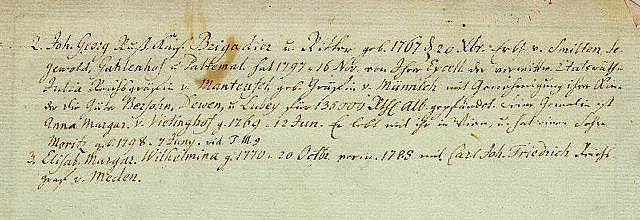 2. Joh. Georg Russ. Kays. Brigadier u. Ritter geb. 1767 d 20 Xbr. Erbh. v. Smilten Se-
gewold, Gutlenhof u. Paltemal. hat 1797. 16 Nov. von Ihro der verwittw. Etatsräthin
Julia Reichsgräfin v. Manteufel, geb. Gräfin v. Münnich mit Genehmigung ihrer
der die Güter Bersohn, Dewen, u. Lubey für 135000 Rthl Alb. gepfändet. Seine Gemalin ist
Anna Margar. v. Vietinghof g. 1769. 12 Jun. Er lebt mit ihr in u. hat einen Sohn
Moritz geb. 1798. 7 Juny. vid. T. M. 9
3. Elisab. Margar. Wilhelmina g. 1770. 20 Octbr. verm. 1785 mit Carl Joh. Friedrich Reichs
graf v. Medem.